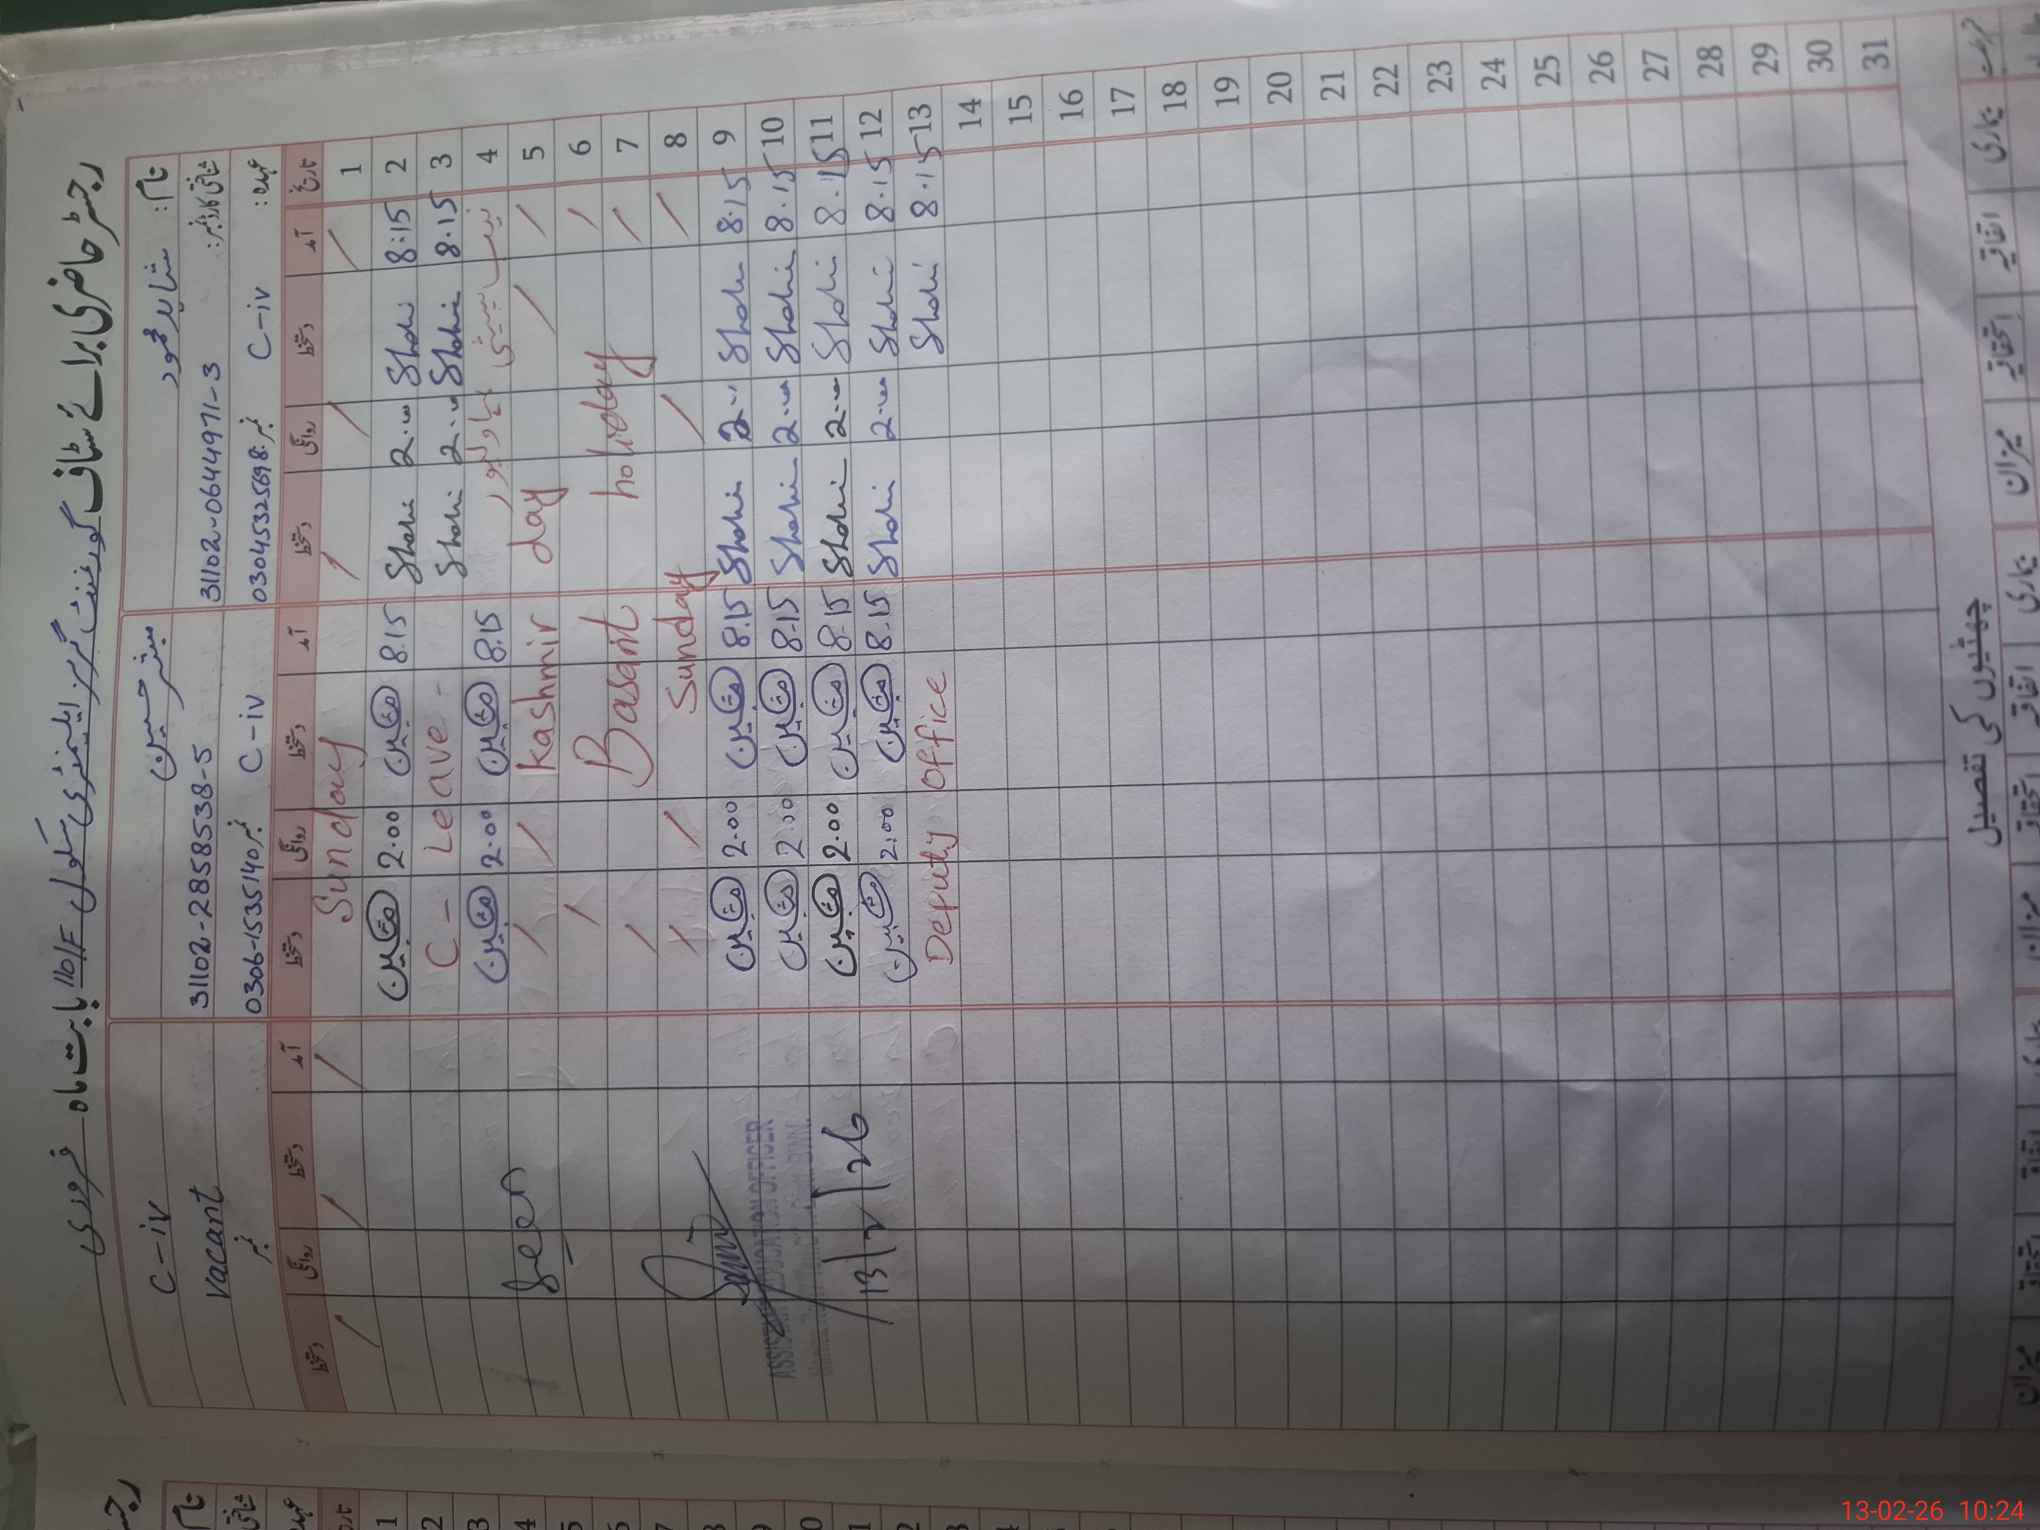 رجسٹر حاضری برائے سٹاف گورنمنٹ گرلز ایلیمنٹری سکول 110/F بابت ماہ فروری
نام: شاہد محمود مبشر حسین C-iv
شناختی کارڈ نمبر: 31102-0644971-3 31102-2858538-5 Vacant
عہدہ: C-iv نمبر 03045325698 C-iv نمبر 0306-1535140 نمبر
تاریخ آمد دستخط روانگی دستخط آمد دستخط روانگی دستخط آمد دستخط روانگی دستخط
1 / / / Sunday / / /
2 8:15 Shahi 2.00 Shahi 8.15 2.00
3 8.15 Shahi 2.00 Shahi C- Leave -
4 8.15 2.00
5 / / Kashmir day / /
6 / Basant holiday /
7 / /
8 / / Sunday / /
9 8.15 Shahi 2.00 Shahi 8.15 2.00
10 8.15 Shahi 2.00 Shahi 8.15 2.00
11 8.15 Shahi 2.00 Shahi 8.15 2.00
12 8.15 Shahi 2.00 Shahi 8.15 2:00
13 8.15 Shahi Deputy office
14
15
16
17
18
19
20
21
22
23
24
25
26
27
28
29
30
31
Seen
ASSISTANT EDUCATION OFFICER
13/2/26
چھٹیوں کی تفصیل
بیماری اتفاقیہ استحقاقیہ میزان بیماری اتفاقیہ استحقاقیہ میزان
13-02-26 10:24